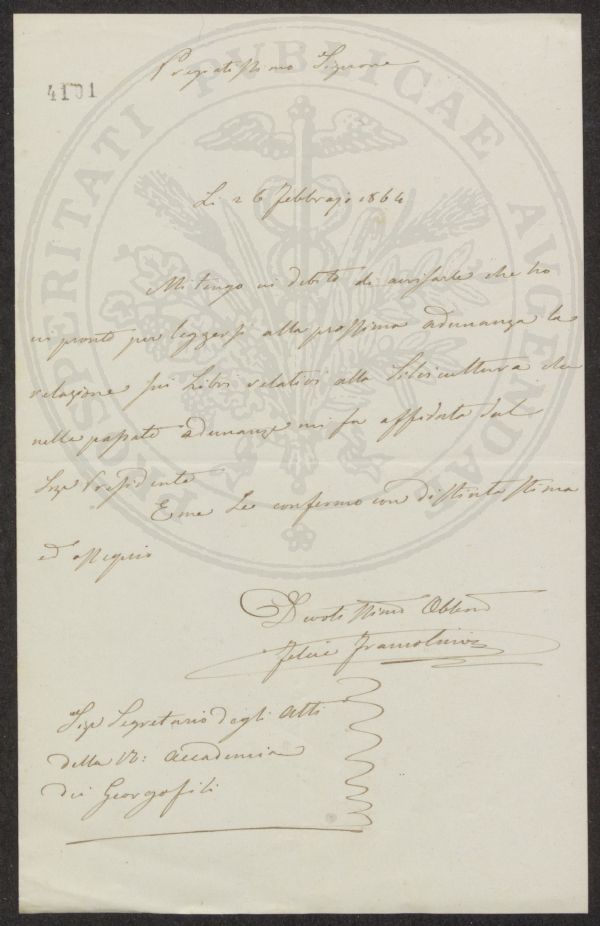 Pregiatissimo Signore
4101
Li 26 febbrajo 1864
Mi tengo in debito di avvisarla che ho
in pronto per leggersi alla prossima adunanza la
relazione sui Libri relativi alla Silvicultura che
nella passata adunanza mi fu affidata dal
Sigr Presidente
E me Le confermo con distinta stima
ed ossequio
Devotissimo Obblmo
Felice Francolini
Sigr Segretario degli Atti
della R: Accademia
dei Georgofili
PROSPERITATI PUBLICAE AUGENDAE